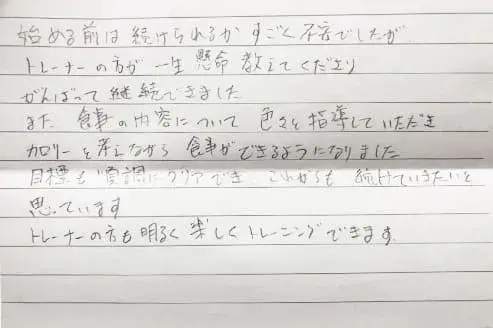 始める前は続けられるかすごく不安でしたが
トレーナーの方が一生懸命教えてくださり
がんばって継続できました
また 食事の内容について 色々と指導していただき
カロリーを考えながら食事ができるようになりました
目標も順調にクリアでき、これからも続けていきたいと
思っています
トレーナーの方も明るく楽しくトレーニングできます。